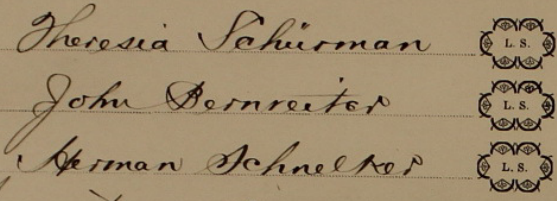 Theresia Schürman L. S.
John Bernreiter L. S.
Herman Schnelker L. S.